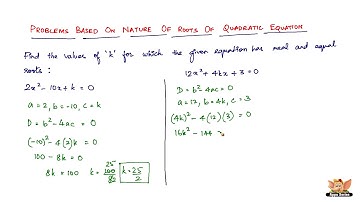 PROBLEMS BASED ON NATURE OF ROOTS OF QUADRATIC EQUATION
Find the values of 'k' for which the given equation has real and equal
roots :
2x² - 10x + k = 0
a = 2, b = -10, c = k
D = b² - 4ac = 0
(-10)² - 4(2)k = 0
100 - 8k = 0
8k = 100 k = 25 100 / 8 2 k = 25/2
12x² + 4kx + 3 = 0
D = b² - 4ac = 0
a = 12, b = 4k, c = 3
(4k)² - 4(12)(3) = 0
16k² - 144